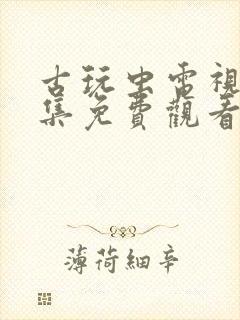 古玩虫電視
集免費觀看
薄荷細辛